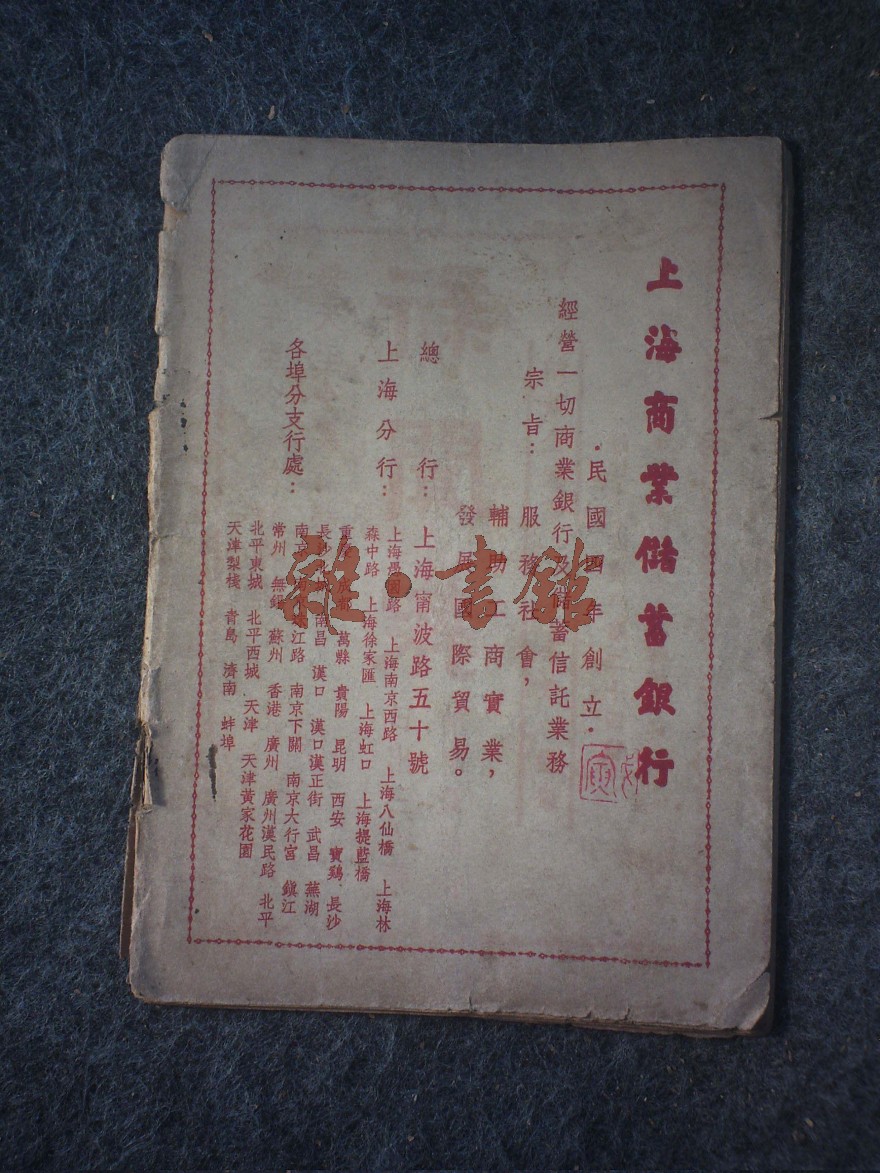 上海商業儲蓄銀行
·民國四年創立·
經營一切商業銀行及儲蓄信託業務
宗旨：服務社會，
輔助工商實業，
發展國際貿易。
總行：上海甯波路五十號
上海分行：上海愚園路 上海南京西路 上海八仙橋 上海林
森中路 上海徐家匯 上海虹口 上海提籃橋
各埠分支行處：重慶 萬縣 貴陽 昆明 西安 寶鷄 長沙
長沙 南昌 漢口 漢口漢正街 武昌 蕪湖
南京 江路 南京下關 南京大行宮 鎮江
常州 無錫 蘇州 香港 廣州 廣州漢民路 北平
北平東城 北平西城 天津 天津黃家花園
天津梨棧 青島 濟南 蚌埠
雜·書館